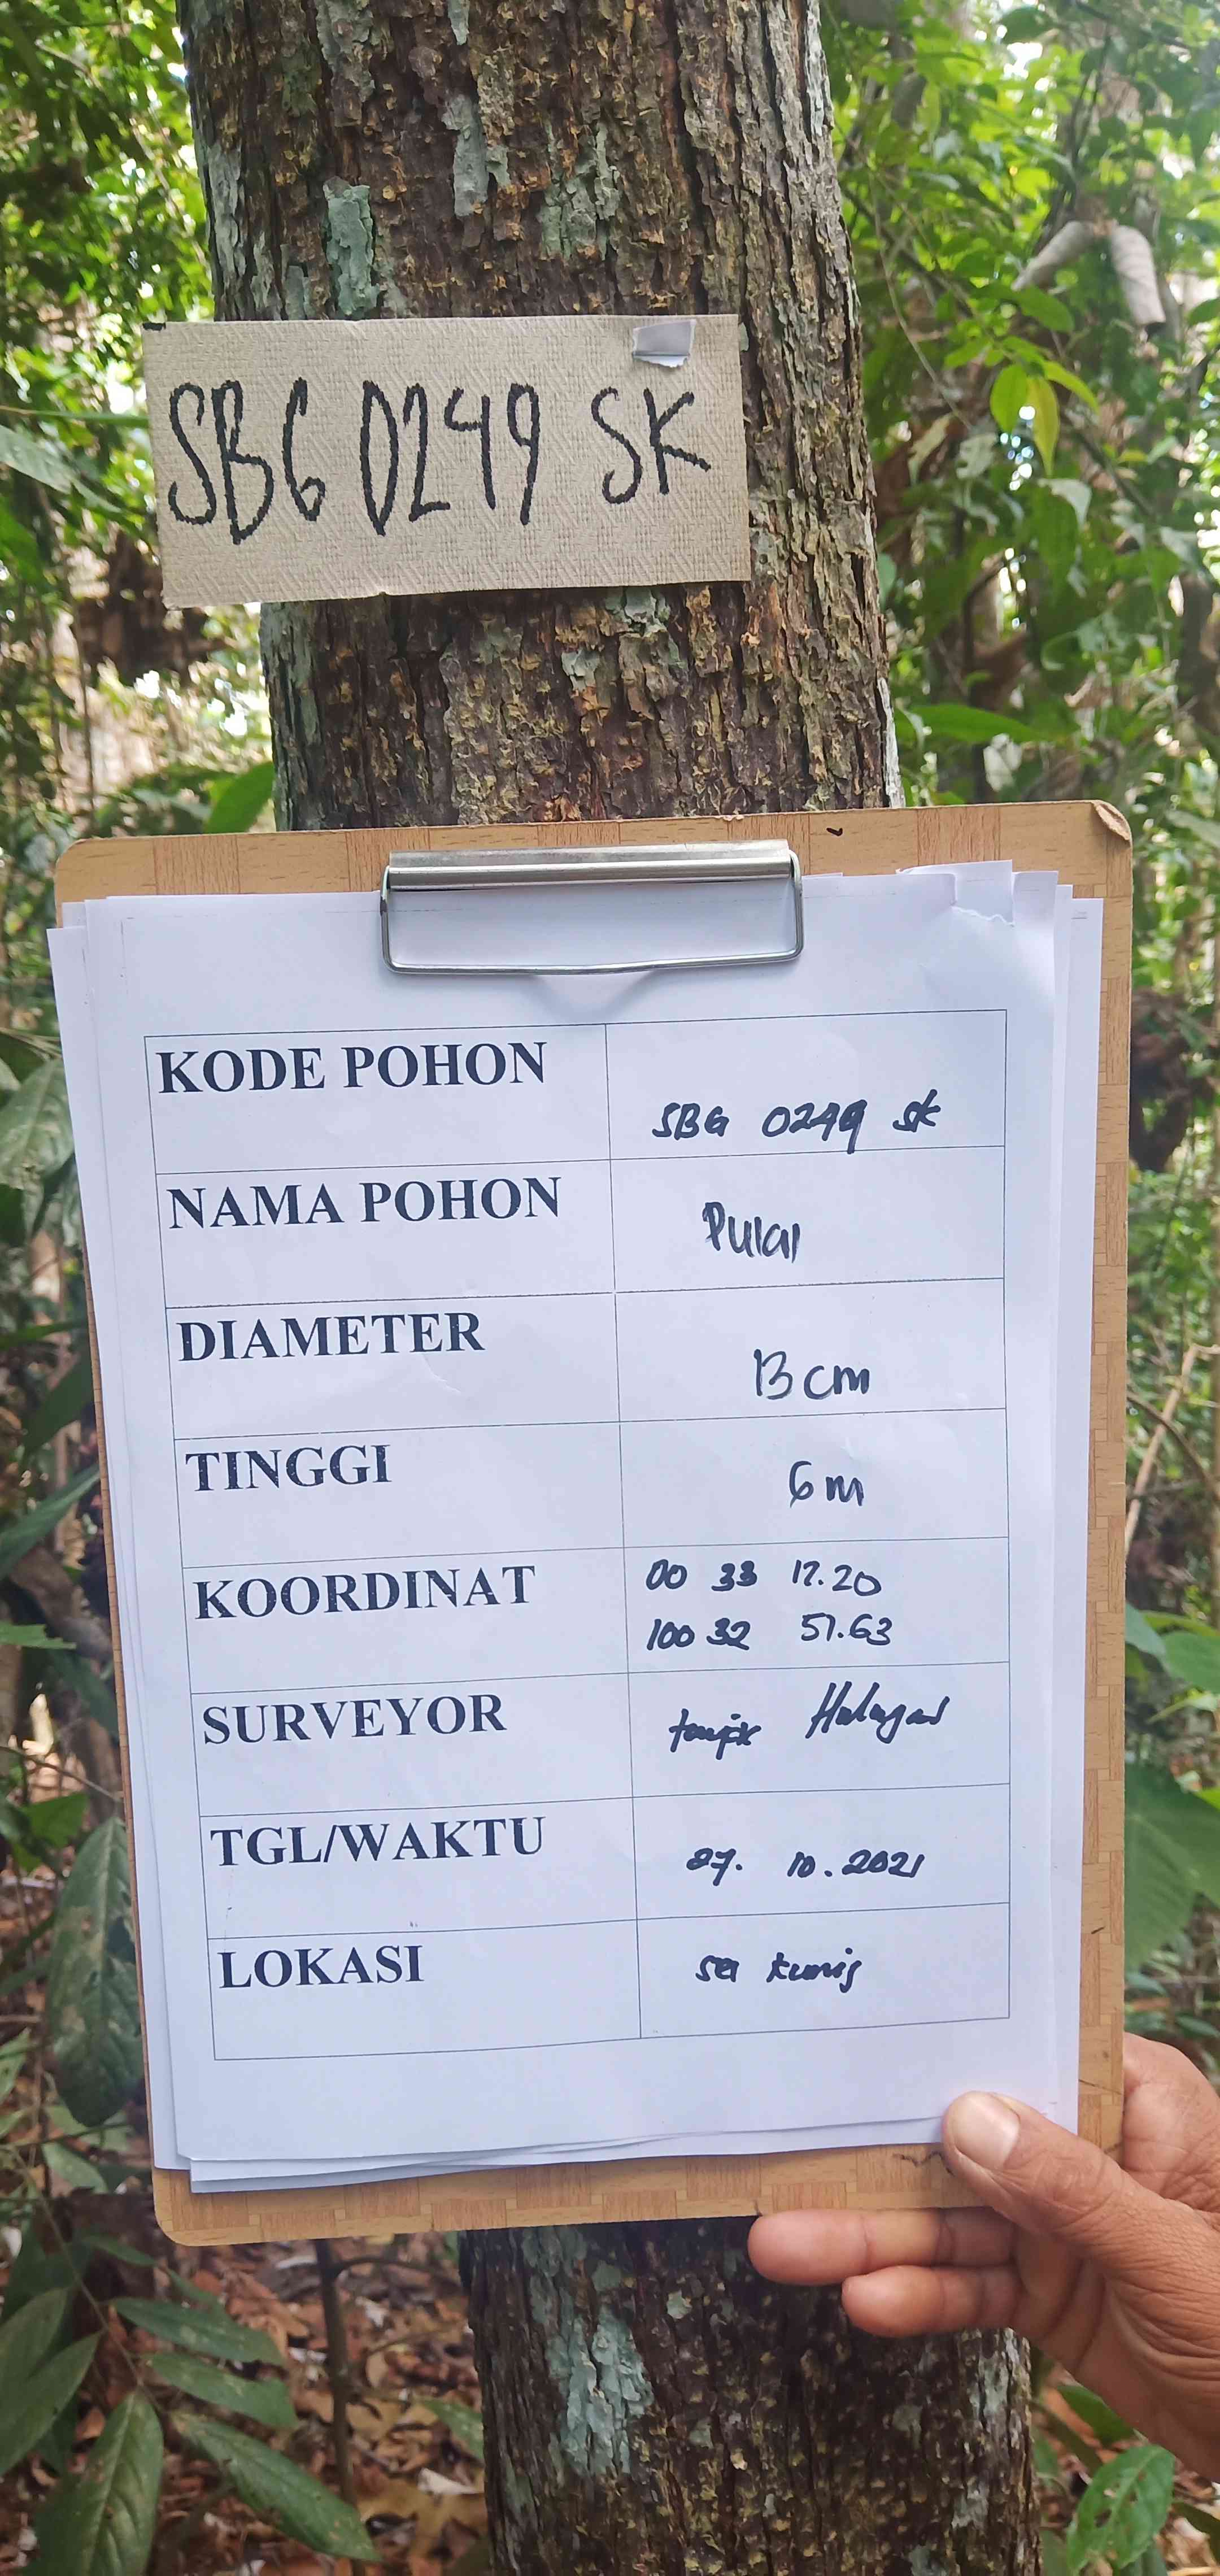 SBG 0249 SK
KODE POHON
SBG 0249 SK
NAMA POHON
Pulai
DIAMETER
13 cm
TINGGI
6 m
KOORDINAT
00 33 17.20
100 32 51.63
SURVEYOR
TGL/WAKTU
27. 10. 2021
LOKASI